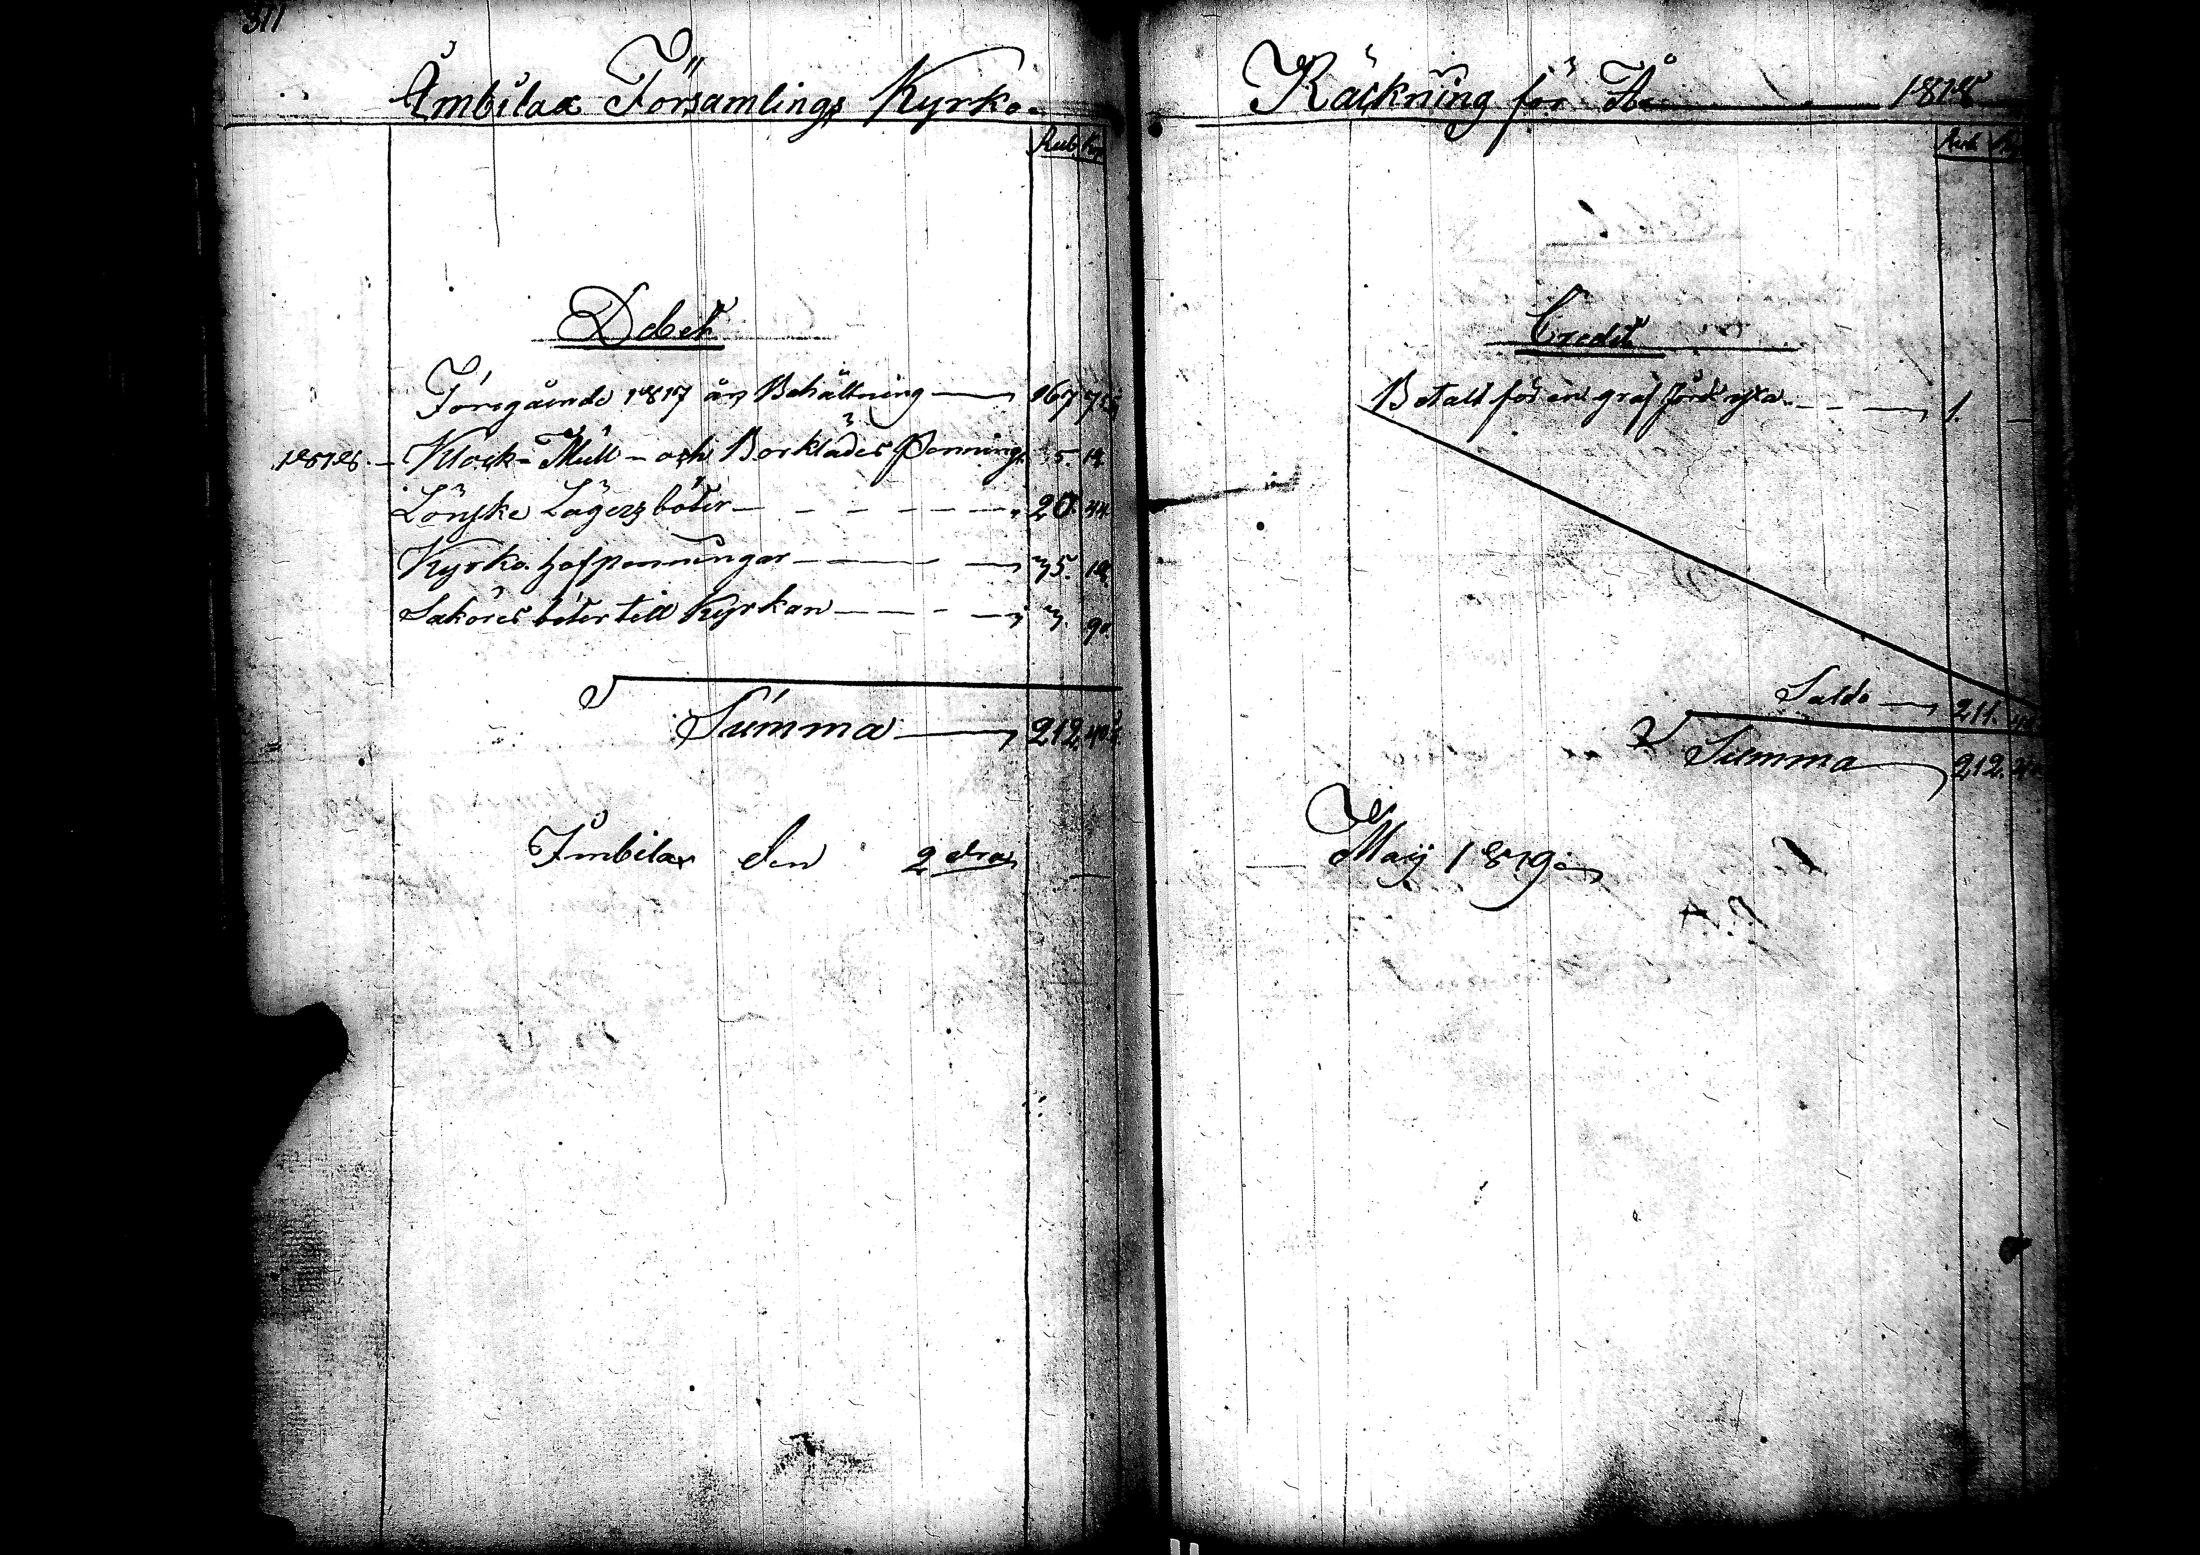 311
Åmbilax Församlings Kyrko-
Rub. Kop.
Debet
Föregående 1817 års Behållning 167 75
1818. Klock- Mull- och Borklädes Penning. 5. 14
Lönske Lägersböter 20. 44.
Kyrko. hafpenningar 35. 18.
Saköres böter till Kyrkan 3. 90.
Summa 212 40
Imbilax den 2 dra
Räckning för År 1818
Rub.
Credit
Betalt för en graf 1.
Saldo 211.
Summa 212.
Maij 1819.